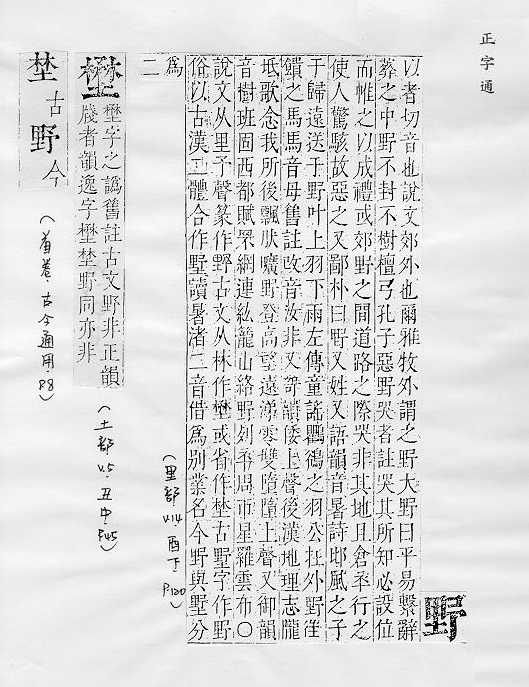 正字通
野
以者切音也說文郊外也爾雅牧外謂之野大野曰平易繫辭
葬之中野不封不樹檀弓孔子惡野哭者註哭其所知必設位
而帷之以成禮或郊野之間道路之際哭非其地且倉卒行之
使人驚駭故惡之又鄙朴曰野又姓又語韻音暑詩邶風之子
于歸遠送于野叶上羽下雨左傳童謠鸜鵒之羽公在外野往
饋之馬馬音母舊註改音汝非又哿韻倭上聲後漢地理志隴
坻歌念我所後飄肰曠野登高望遠涕零雙墮墮上聲又御韻
音樹班固西都賦罘網連紘籠山絡野列卒周帀星羅雲布○
說文从里予聲篆作野古文从林作壄或省作埜古墅字作野
俗以古漢二體合作墅讀暑渚二音借爲別業名今野與墅分
爲
二
(里部 V.14 酉下 P.120)
壄
壄字之譌舊註古文野非正韻
牋者韻逸字壄埜野同亦非
(土部 V.5. 丑中. P.45)
埜古野今
(首卷. 古今通用. P.8)